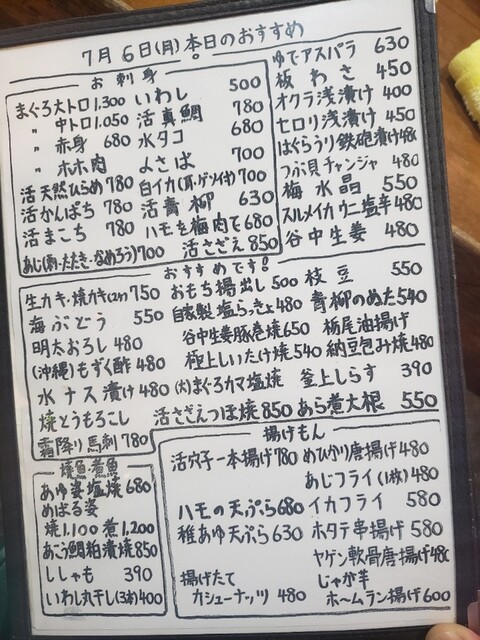 7月6日(月)本日のおすすめ
お刺身
まぐろ大トロ1,300 いわし 500
〃 中トロ1,050 活真鯛 780
〃 赤身 680 水タコ 680
〃 ホホ肉 よさば 700
活天然ひらめ 780 白イカ(耳・ゲソ付) 700
活かんぱち 780 活青柳 630
活まこち 780 ハモを梅肉で680
あじ(刺・たたき・なめろう)700 活さざえ 850
ゆでアスパラ 630
板わさ 450
オクラ浅漬け 400
セロリ浅漬け 450
はぐらうり鉄砲漬け480
つぶ貝チャンジャ 480
梅水晶 550
スルメイカウニ塩辛 480
谷中生姜 480
おすすめです!
生カキ・焼カキ(2ケ) 750 おもち揚出し 500 枝豆 550
海ぶどう 550 自家製塩らっきょ480 青柳のぬた540
明太おろし 480 谷中生姜豚巻焼650 栃尾油揚げ
(沖縄)もずく酢 480 極上しいたけ焼 540 納豆包み焼 480
水ナス漬け 480 (大)まぐろカマ塩焼 釜上しらす 390
焼とうもろこし 活さざえつぼ焼 850 あら煮大根 550
霜降り馬刺 780
焼魚・煮魚
あゆ姿塩焼 680
めばる姿
焼1,100 煮1,200
あこう鯛粕漬焼850
ししゃも 390
いわし丸干し(3本)400
揚げもん
活穴子一本揚げ 780 めひかり唐揚げ 480
あじフライ(1枚)480
ハモの天ぷら680 イカフライ 580
稚あゆ天ぷら 630 ホタテ串揚げ 580
ヤゲン軟骨唐揚げ480
揚げたて じゃが芋
カシューナッツ 480 ホームラン揚げ 600